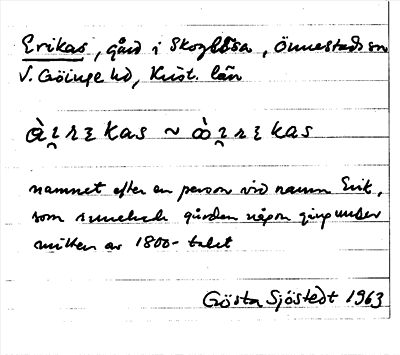 Erikas, gård i Skoglösa, Önnestads sn
V. Göinge hd, Krist. län
kas ~ kas
namnet efter en person vid namn Erik,
som innehade gården någon gång under
mitten av 1800-talet
Gösta Sjöstedt 1963